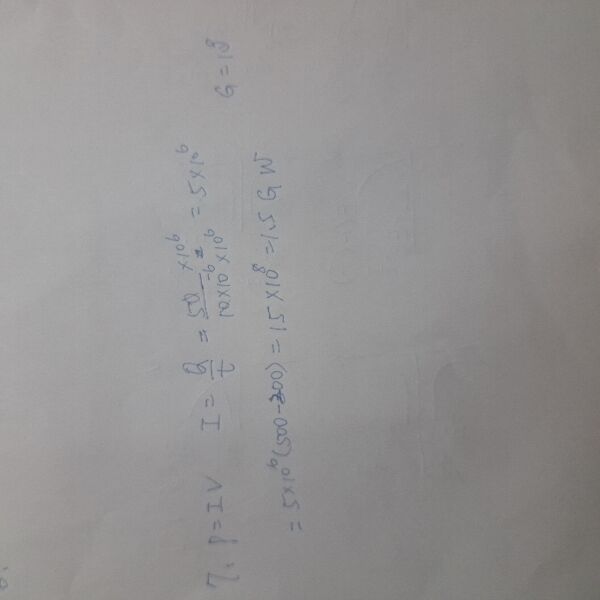 7. P=IV I = Q/t = 50×10⁶/10×10⁻⁶×10⁶ = 5×10⁶ G=18
= 5×10⁶(500-200) = 15×10⁸ = 1.5 GW